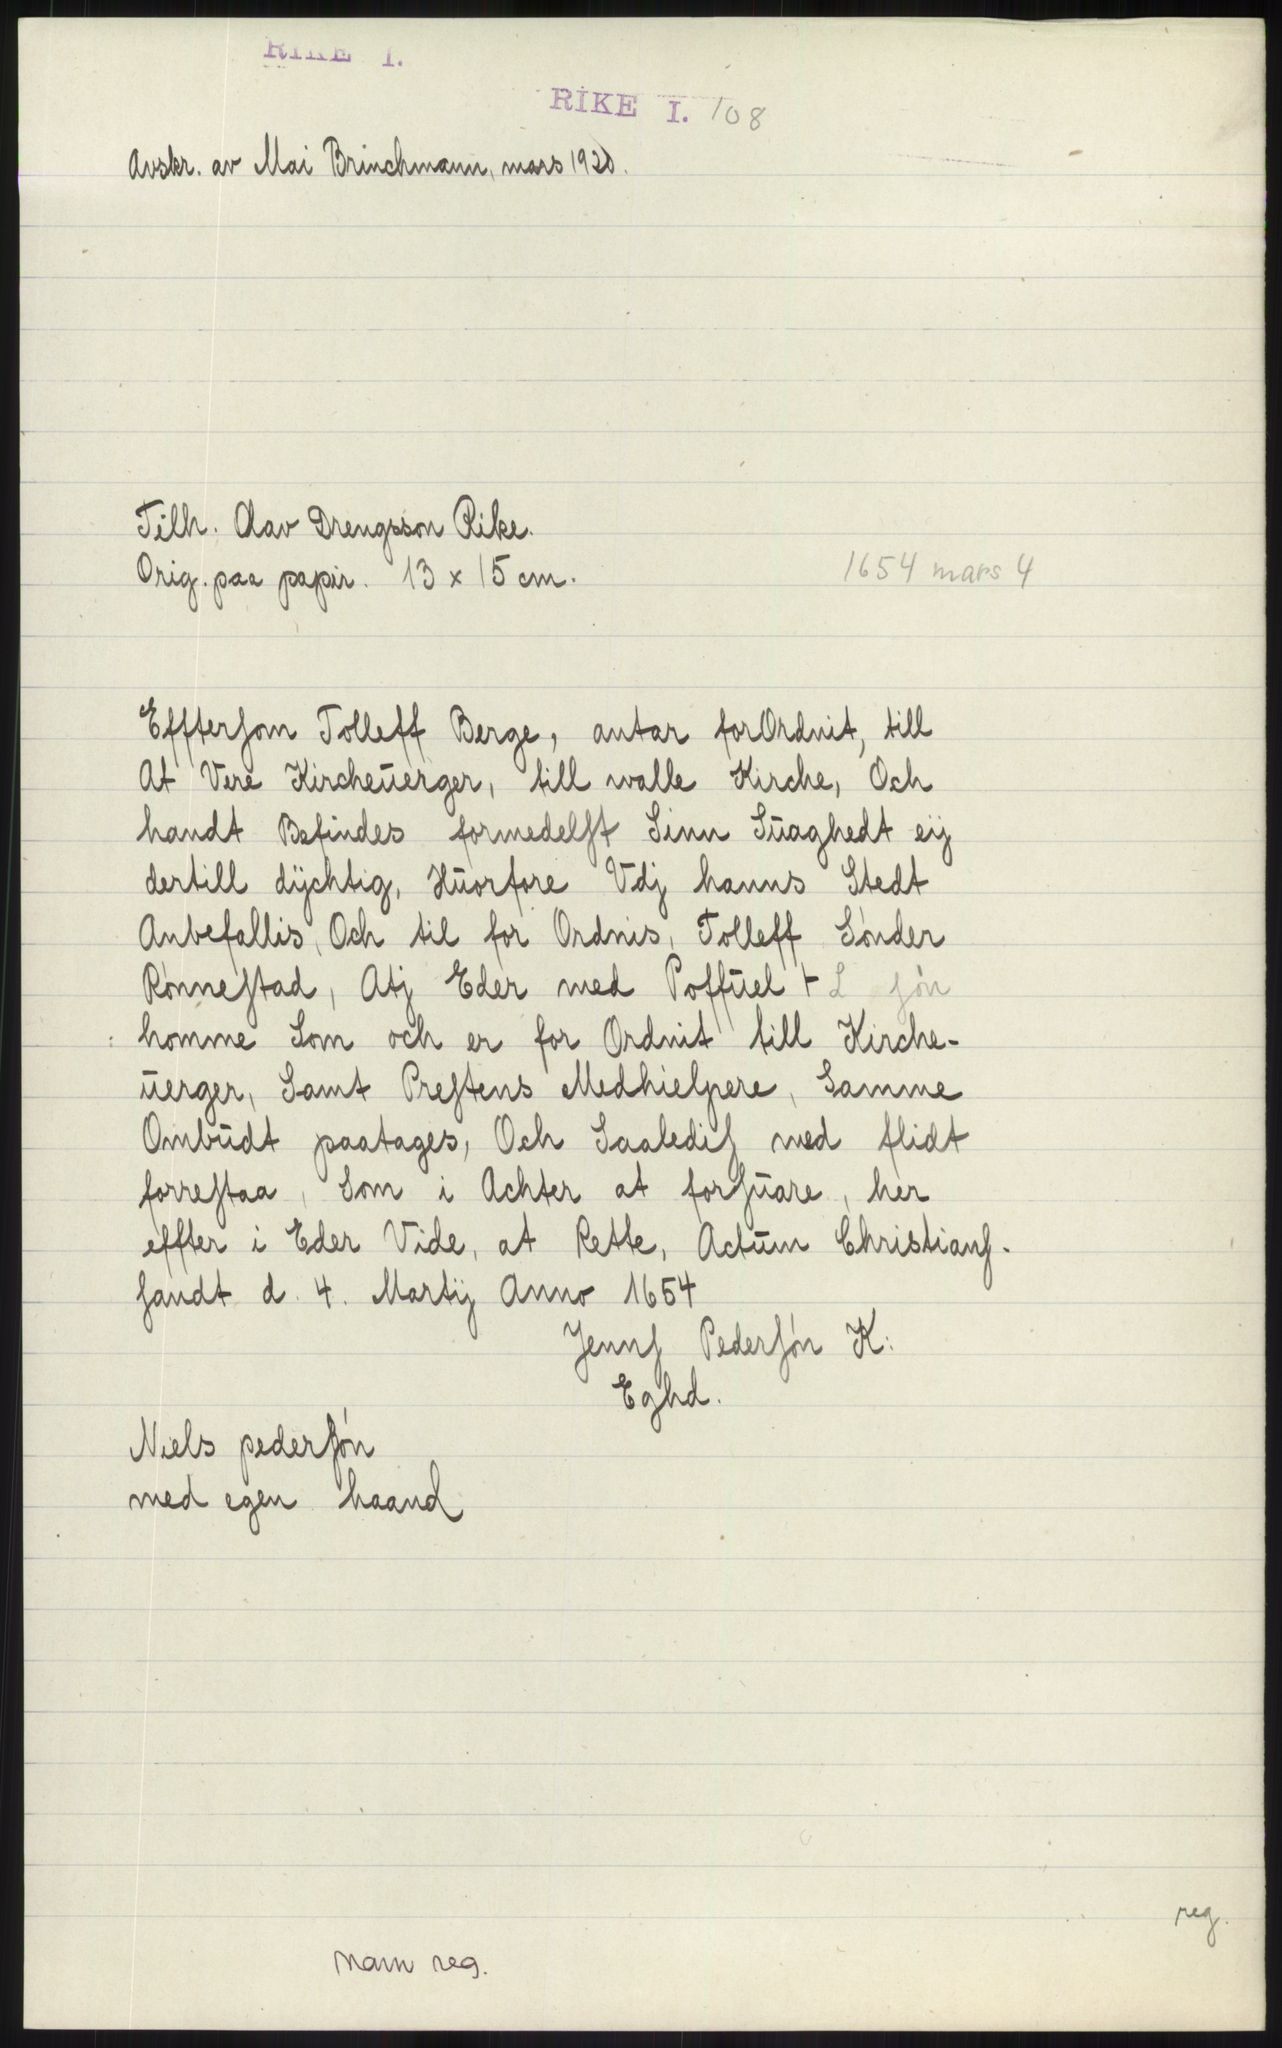 RIKE I.
RIKE I. 108
Avskr. av Mai Brinchmann, mars 1920.
Tilh. Olav Drengsson Rike.
Orig. paa papir. 13 x 15 cm.
1654 mars 4
Efftersom Tolleff Berge, antar forOrdnit, till
At Vere Kircheŭerger, till walle Kirche, Och
handt Befindes formedelst Sinn Sŭaghedt eij
dertill dÿchtig, Hŭorfore Vdj hanns Stedt
Anbefallis, Och til for Ordnis, Tolleff Sónder
Rónnestad, Atj Eder med Poffŭel + L són
homme Som och er for Ordnit till Kirche-
ŭerger, Samt Prestens Medhielpere, Samme
Ombŭdt paatages, Och Saaledis med flidt
forrestaa, Som i Achter at forsŭare, her
effter i Eder Vide, at Rette, Actŭm Christians-
sandt d. 4. Martij Anno 1654
Jenns Pedersón K:
Eghd.
Niels pedersón
med egen haand
reg.
Navn reg.